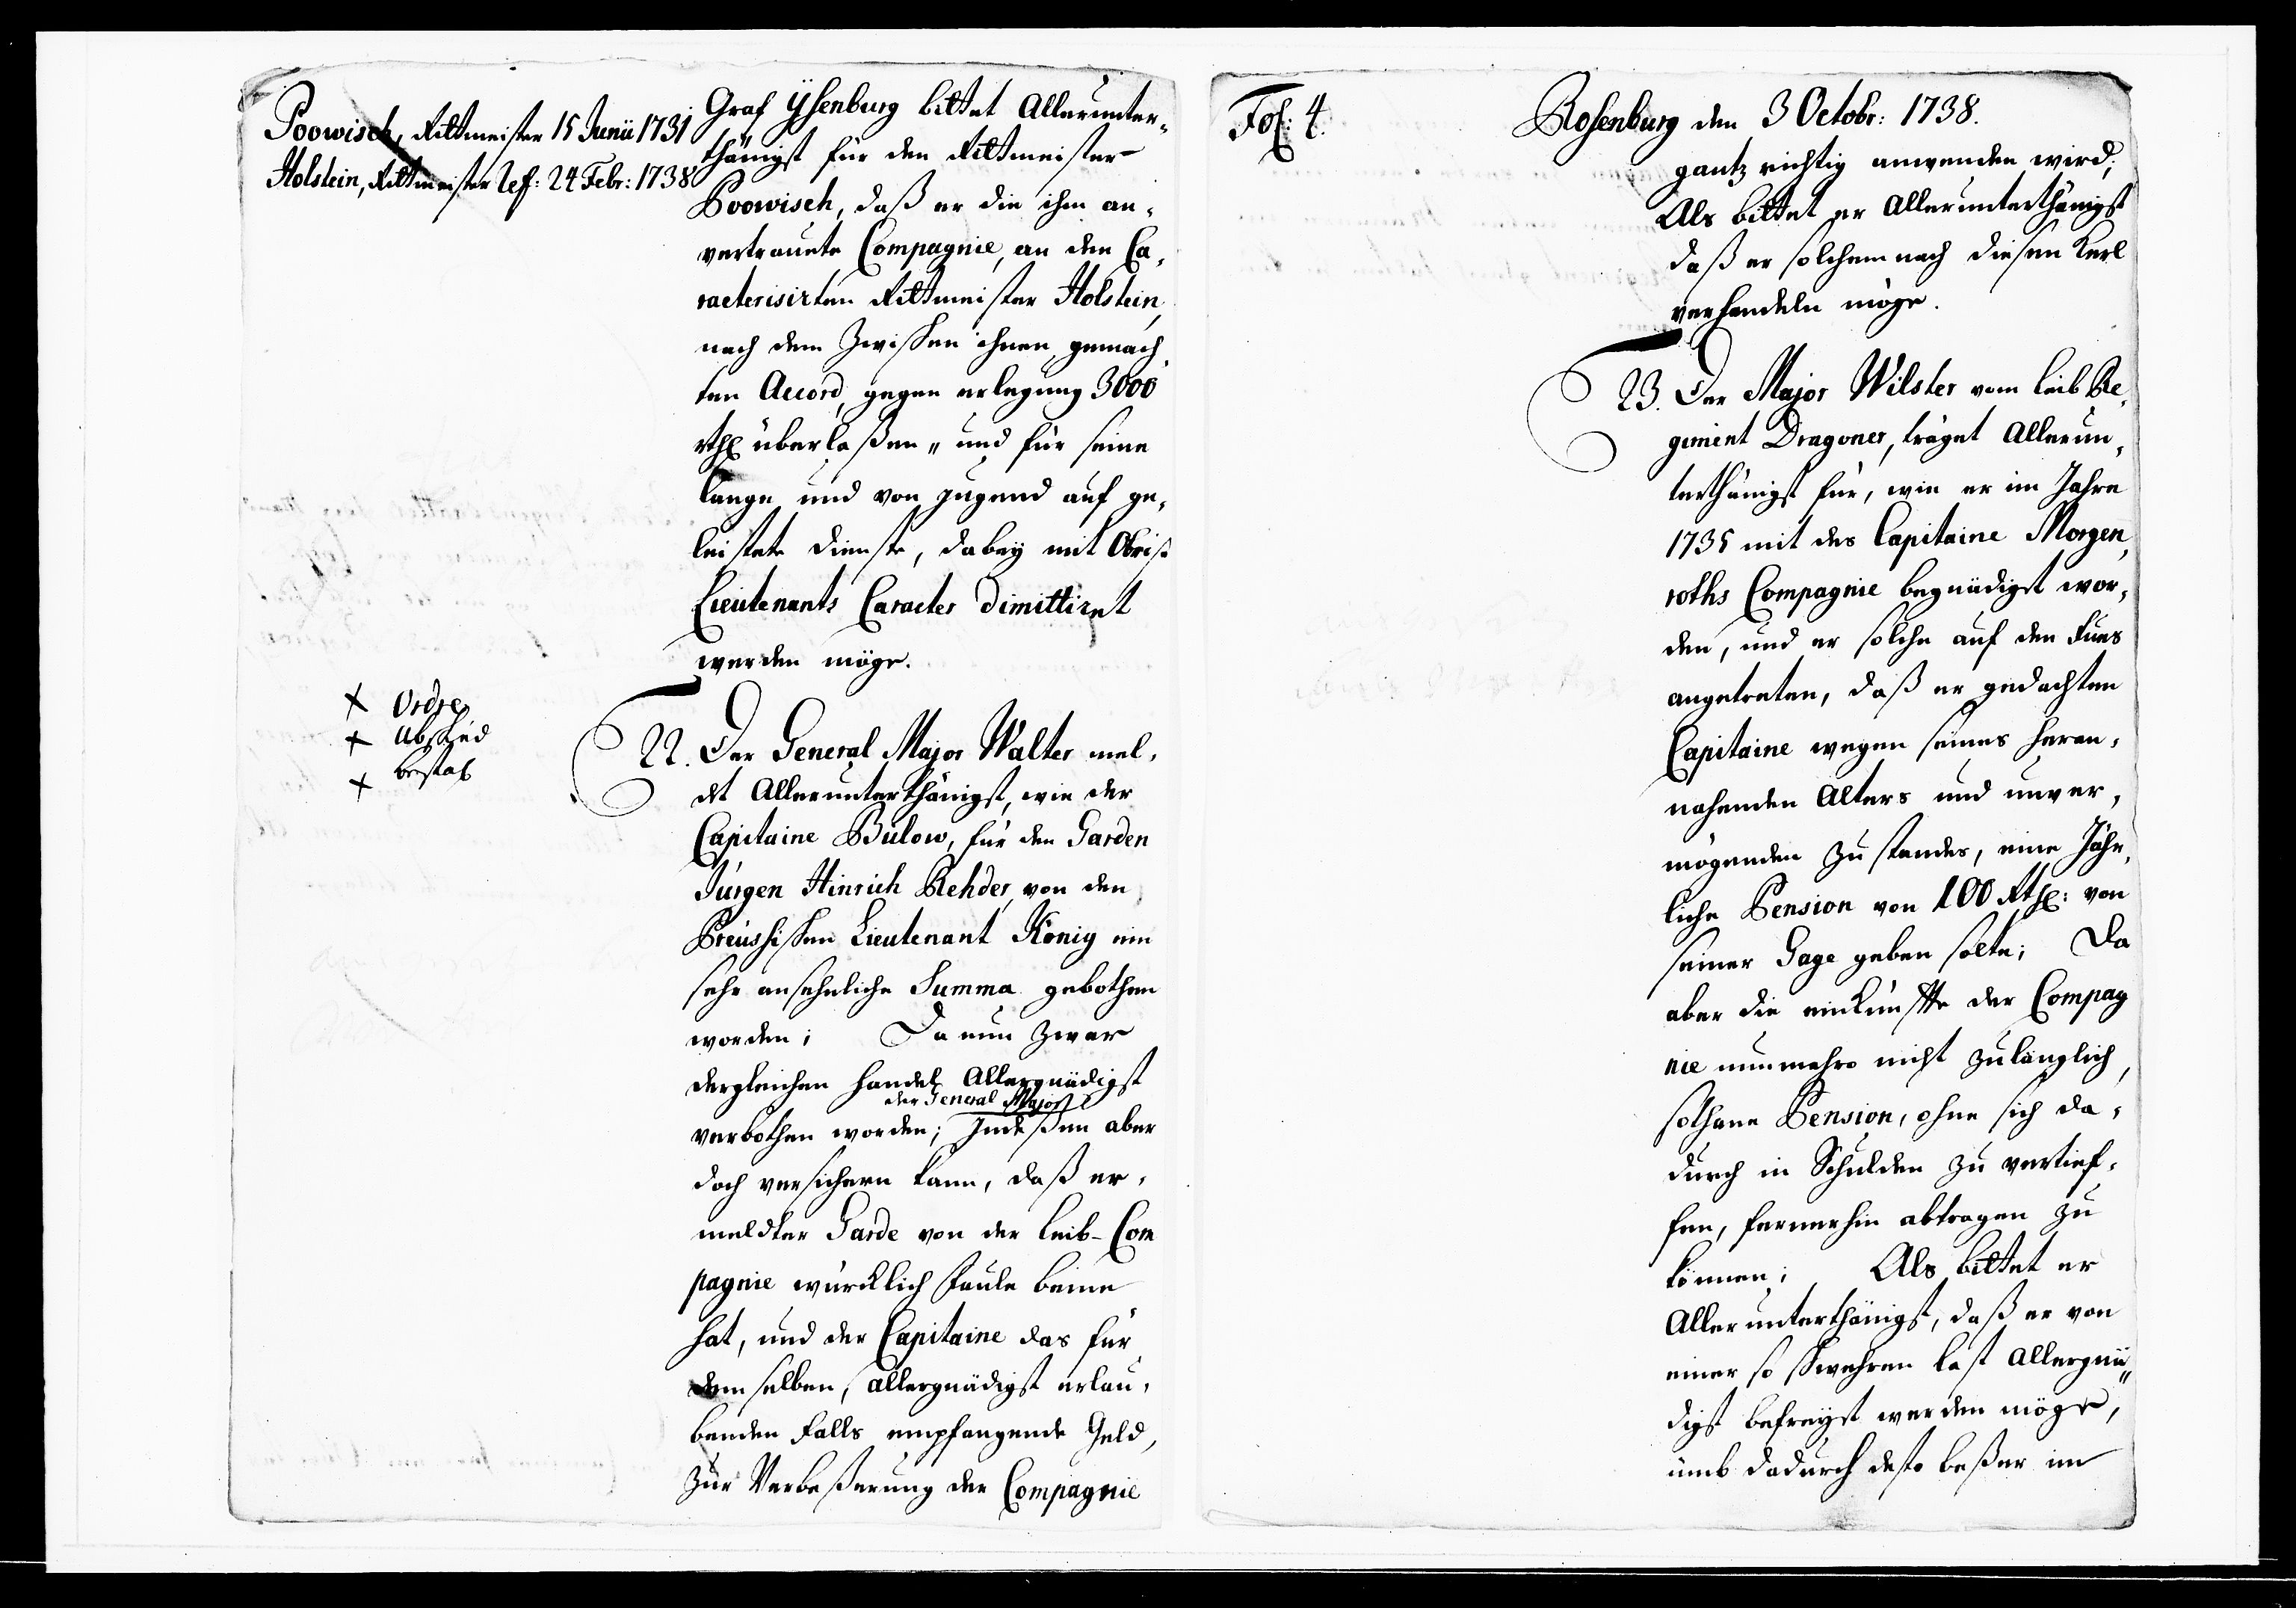 Poowisch, Rittmeister 15 Junii 1731
Holstein, Rittmeister Ref: 24 Febr: 1738
Graf Ysenburg bittet Allerunter-
thänigst für den Rittmeister
Poowisch, daß er die ihm an-
vertrauete Compagnie, an den Ca-
racterisirten Rittmeister Holstein,
nach dem zwischen ihnen gemach-
ten Accord, gegen erlegung 3000
rthl überlaßen, und für seine
lange und von jugend auf ge-
leistete dienste, dabey mit Obrist
Lieutenants Caracter dimittiret
werden möge.
+ Ordre
+ Abschied
+ bestal
22. Der General Major Walter mel-
det Allerunterthänigst, wie der
Capitaine Bülow, für den Garden
Jürgen Hinrich Rehder, von den
Preussischen Lieutenant König ein
sehr ansehnliche Summa gebothen
worden; Da nun zwar
dergleichen handel Allergnädigst
der General Major
verbothen worden; Indeßen aber
doch versichern kann, daß er-
meldter Garde von der Leib-Com
pagnie würcklich faule beine
hat, und der Capitaine das für
demselben, allergnädigst erlau-
benden Falls empfangende Geld,
zur Verbeßerung der Compagnie
Fol: 4.
Rosenburg den 3 Octobr: 1738.
gantz richtig anwenden wird;
Als bittet er Allerunterthänigst
daß er solchemnach diesen Kerl
verhandeln möge.
23. Der Major Wilster vom Leib Re-
giment Dragoner, träget Allerun-
terthänigst für, wie er im Jahre
1735 mit des Capitaine Morgen-
roths Compagnie begnädigt wor-
den, und er solche auf den Fues
angetreten, daß er gedachten
Capitaine wegen seines heran-
nahenden Alters und unver-
mögenden zustandes, eine Jähr-
liche Pension von 100 Rthl: von
seiner Gage geben solte; Da
aber die einkünffte der Compag
nie nunmehro nicht zulänglich,
sothane Pension, ohne sich da-
durch in Schulden zu vertief-
fen, fernerhin abtragen zu
können; Als bittet er
Allerunterthänigst, daß er von
einer so schwehren last Allergnä-
digst befreyet werden möge,
umb dadurch desto beßer im